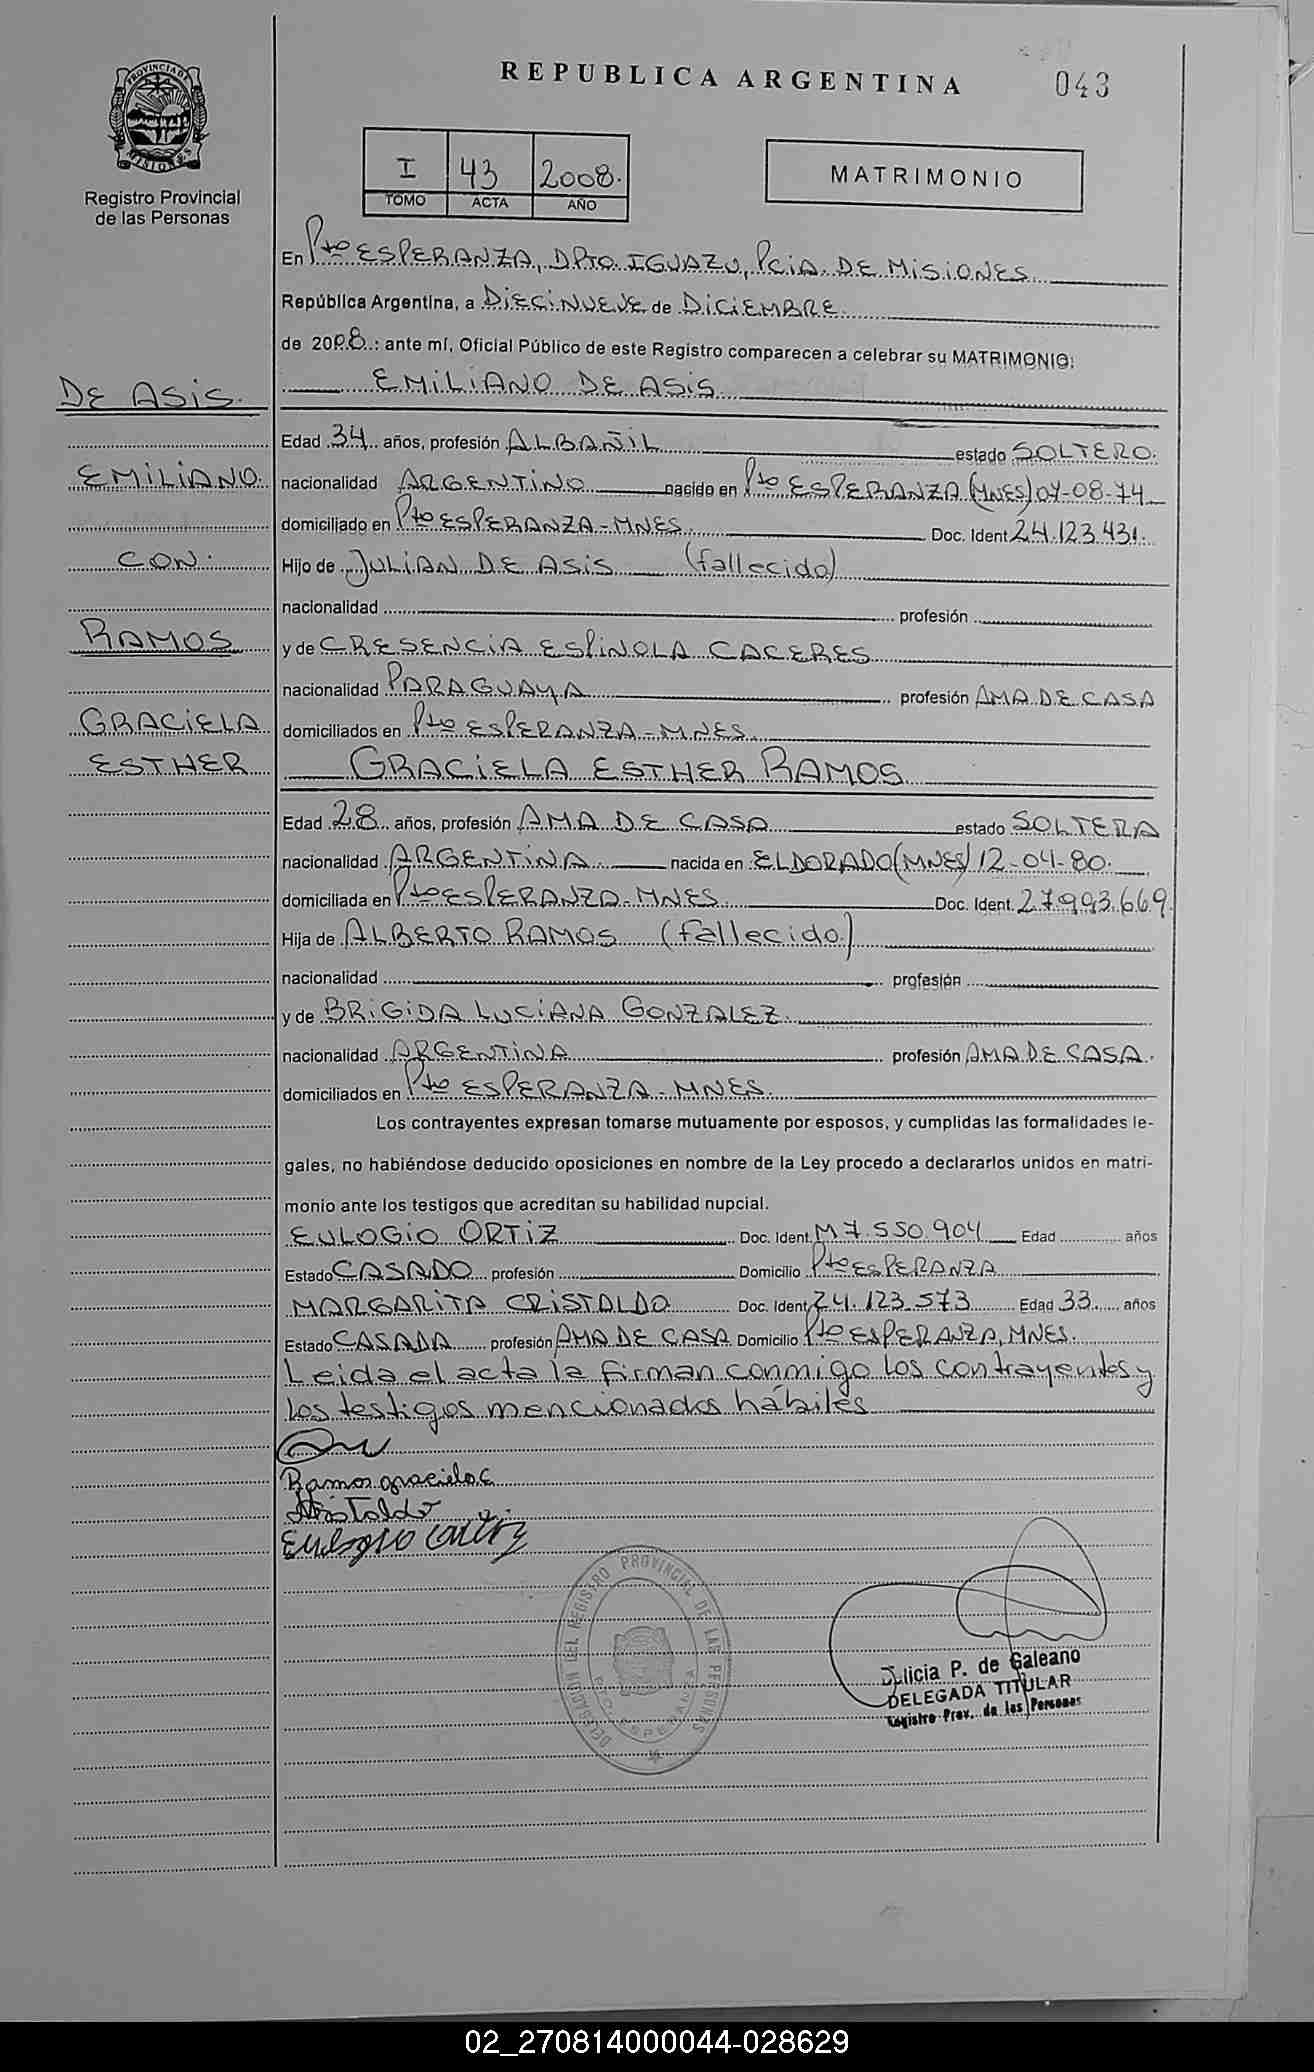 REPUBLICA ARGENTINA
043
PROVINCIA DE
MISIONES
Registro Provincial
de las Personas
I 43 2008.
TOMO ACTA AÑO
MATRIMONIO
En Pto ESPERANZA, DPTO. IGUAZU, PCIA. DE MISIONES
República Argentina, a DIECINUEVE de DICIEMBRE
de 2008.: ante mí, Oficial Público de este Registro comparecen a celebrar su MATRIMONIO:
EMILIANO DE ASIS
DE ASIS.
EMILIANO.
CON.
RAMOS
GRACIELA
ESTHER
Edad 34 años, profesión ALBAÑIL estado SOLTERO.
nacionalidad ARGENTINO nacido en Pto ESPERANZA (MNES) 07-08-74
domiciliado en Pto ESPERANZA - MNES. Doc. Ident 24.123.431.
Hijo de JULIAN DE ASIS (fallecido)
nacionalidad profesión
y de CRESENCIA ESPINOLA CACERES
nacionalidad PARAGUAYA profesión AMA DE CASA
domiciliados en Pto ESPERANZA - MNES.
GRACIELA ESTHER RAMOS
Edad 28 años, profesión AMA DE CASA estado SOLTERA
nacionalidad ARGENTINA nacida en ELDORADO (MNES) 12-04-80.
domiciliada en Pto ESPERANZA - MNES Doc. Ident. 27.993.669
Hija de ALBERTO RAMOS (fallecido)
nacionalidad profesión
y de BRIGIDA LUCIANA GONZALEZ.
nacionalidad ARGENTINA profesión AMA DE CASA.
domiciliados en Pto ESPERANZA - MNES.
Los contrayentes expresan tomarse mutuamente por esposos, y cumplidas las formalidades le-
gales, no habiéndose deducido oposiciones en nombre de la Ley procedo a declararlos unidos en matri-
monio ante los testigos que acreditan su habilidad nupcial.
EULOGIO ORTIZ Doc. Ident. M7.550.904 Edad años
Estado CASADO profesión Domicilio Pto ESPERANZA
MARGARITA CRISTALDO Doc. Ident 24.123.573 Edad 33 años
Estado CASADA profesión AMA DE CASA Domicilio Pto ESPERANZA, MNES.
Leida el acta la firman conmigo los contrayentes y
los testigos mencionados hábiles
Ramos graciela E
Cristaldo
Eulogio Ortiz
DELEGACION DEL REGISTRO PROVINCIAL DE LAS PERSONAS
PTO. ESPERANZA
licia P. de Galeano
DELEGADA TITULAR
Registro Prov. de las Personas
02_270814000044-028629